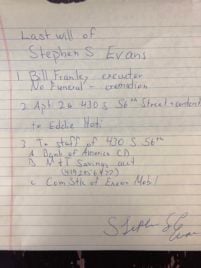 Last will of
Stephen S Evans
1. Bill Franley executor
No Funeral = cremation
2. Apt 2a 430 S 56th Street + content
to Eddie
3. To staff of 430 S 56th
A. Bank of America CD
B. M + I Savings acct
C. Com Stk of Exxon Mobil
Stephen S
Evans